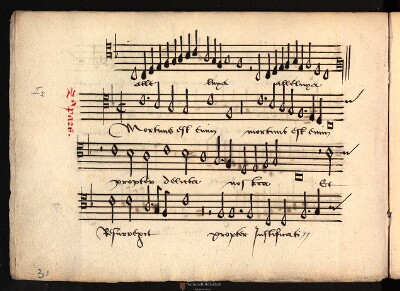 alle luya alleluya
Mortuus est enim mortuus est enim
propter delicta nostra Et
Resurrexit propter Justificati